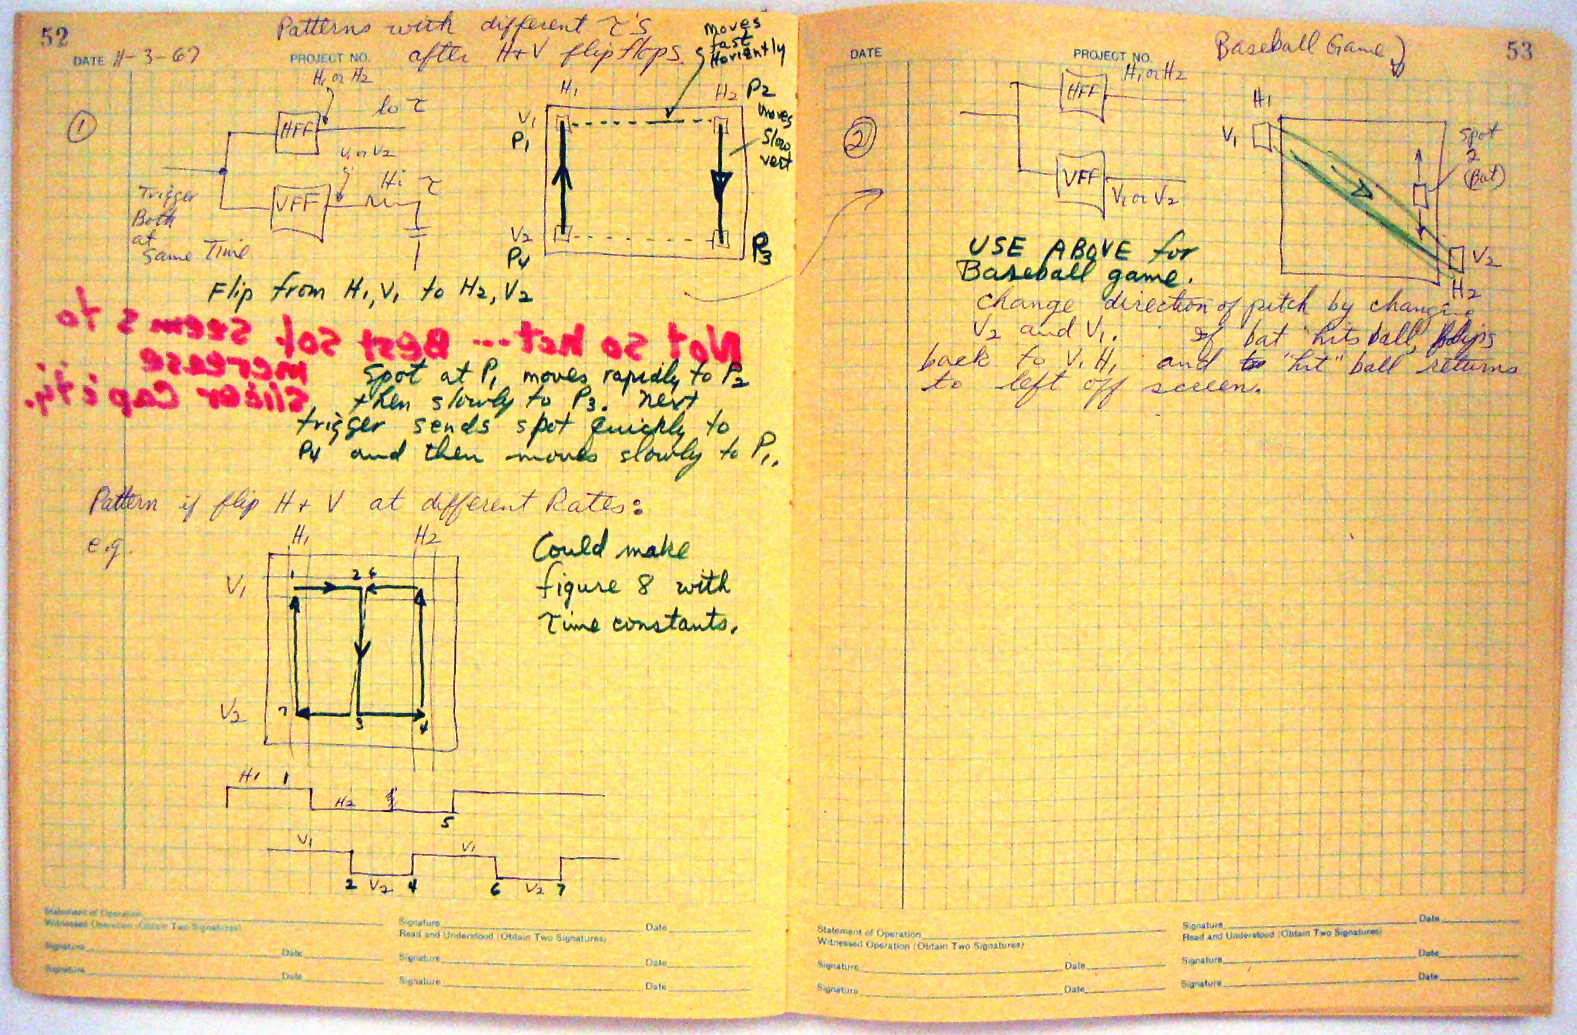 52
DATE 11-3-67
PROJECT NO.
Patterns with different τ's
after H+V flipflops
moves
fast
Horizontly
①
H1 or H2
lo τ
HFF
V1 or V2
Hi τ
VFF
Trigger
Both
at
Same Time
H1
H2 P2
V1
P1
moves
slow
vert
V2
P4
P3
Flip from H1, V1 to H2, V2
Not so hot... Best sol. seems to
increase
slicer cap'ty.
Spot at P1 moves rapidly to P2
then slowly to P3. Next
trigger sends spot quickly to
P4 and then moves slowly to P1.
Pattern if flip H + V at different Rates:
e.g.
H1
H2
V1
1
2 6
V2
7
3
4
Could make
figure 8 with
time constants.
H1 1
H2
5
V1
V1
2 V2 4
6 V2 7
Statement of Operation
Witnessed Operation (Obtain Two Signatures)
Signature
Date
Signature
Date
Signature
Date
Read and Understood (Obtain Two Signatures)
Signature
Date
Signature
Date
DATE
PROJECT NO.
Baseball Game
53
②
H1 or H2
HFF
VFF
V1 or V2
H1
V1
Spot
2
(Bat)
V2
H2
USE ABOVE for
Baseball game.
change direction of pitch by changing
V2 and V1. If bat "hits ball, flips
back to V1 H1 and "hit" ball returns
to left off screen.
Statement of Operation
Witnessed Operation (Obtain Two Signatures)
Signature
Date
Signature
Date
Signature
Date
Read and Understood (Obtain Two Signatures)
Signature
Date
Signature
Date